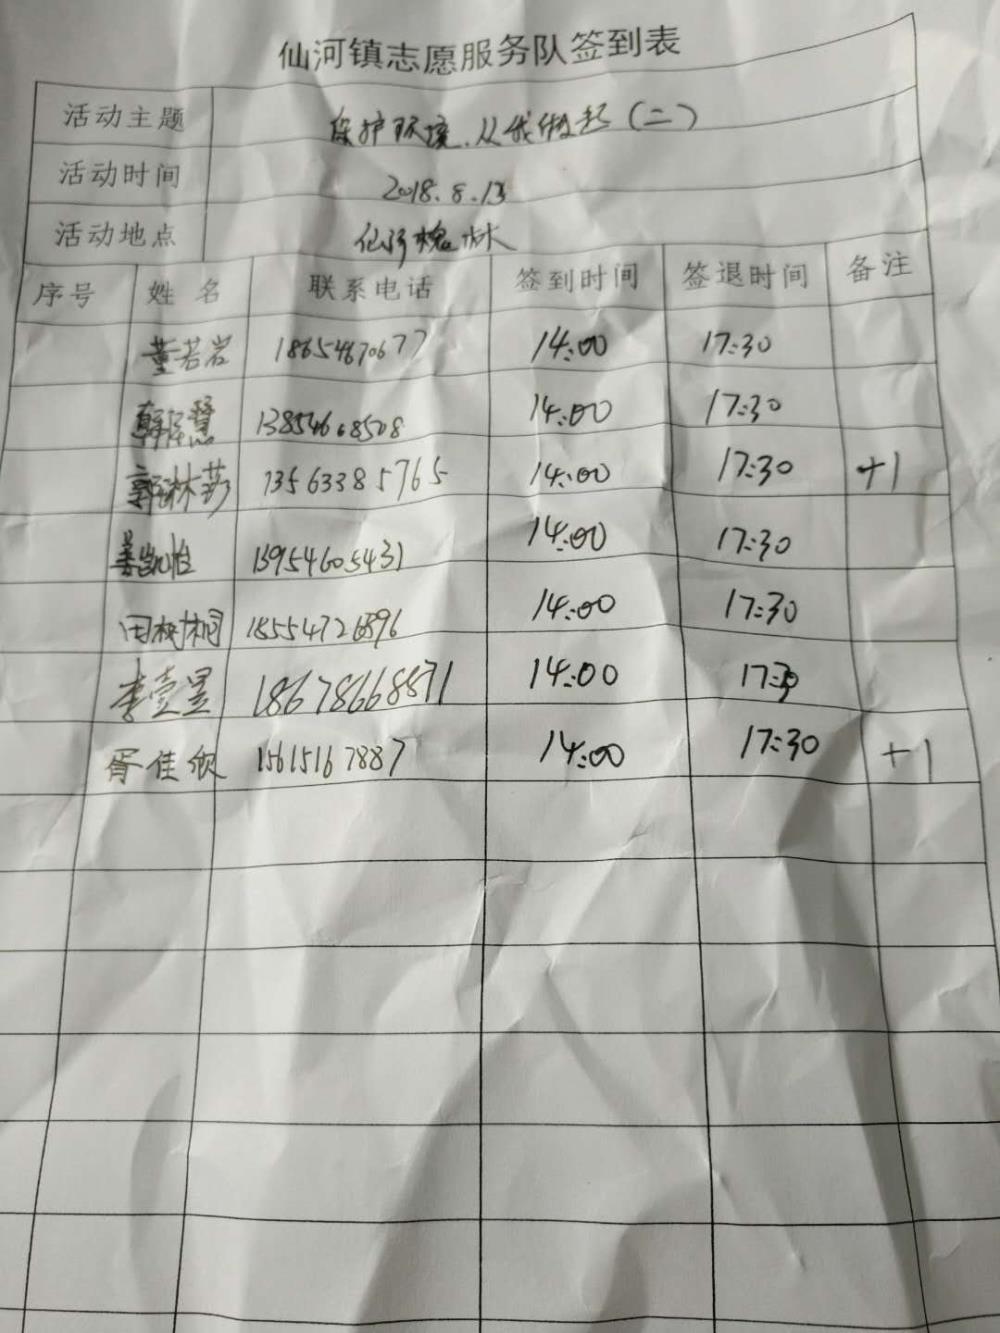 仙河镇志愿服务队签到表
活动主题 保护环境.从我做起(二)
活动时间 2018.8.13
活动地点 仙河槐林
序号 姓名 联系电话 签到时间 签退时间 备注
董若岩 18654670677 14:00 17:30
韩 慧 13854668508 14:00 17:30
郭林莎 13563385765 14:00 17:30 +1
姜凯怡 13954605431 14:00 17:30
田树桐 14:00 17:30
李壹昱 18678668871 14:00 17:30
胥佳欣 15615167887 14:00 17:30 +1